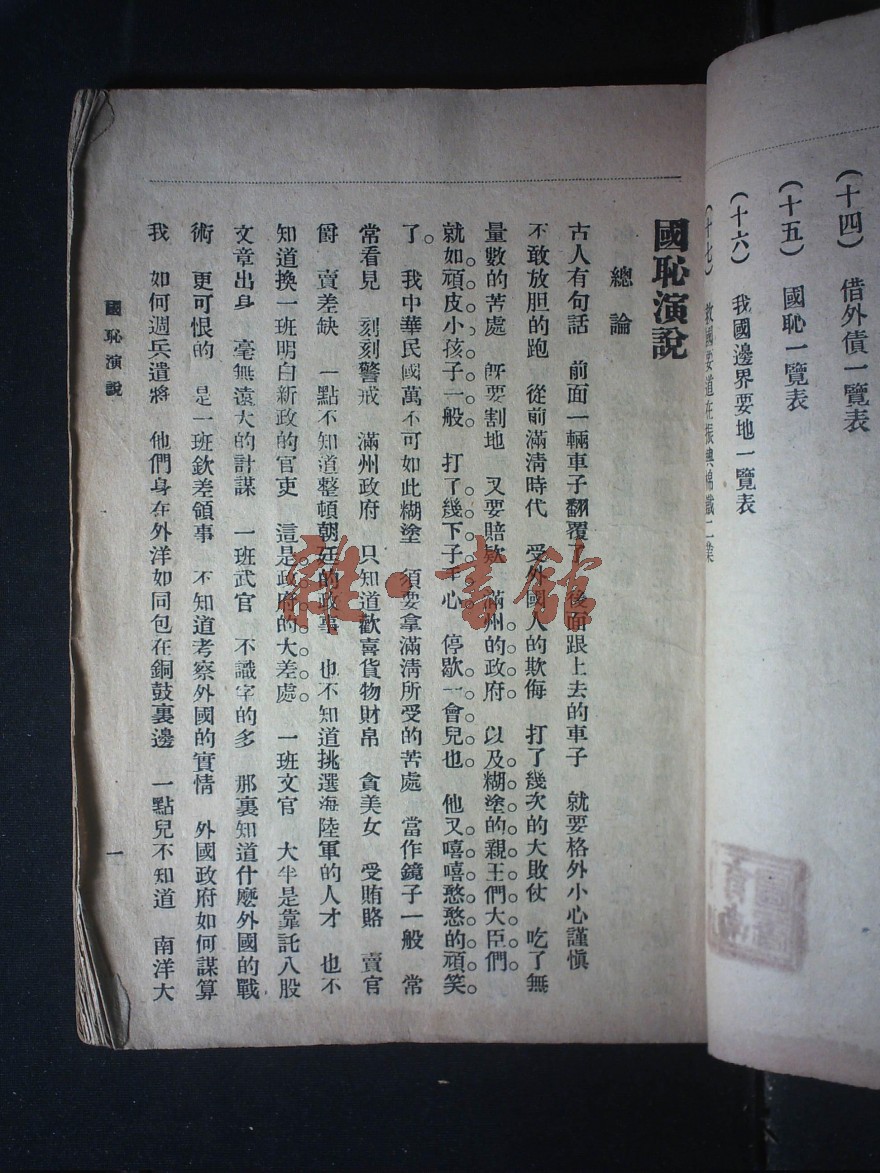 (十四) 借外債一覽表
(十五) 國恥一覽表
(十六) 我國邊界要地一覽表
(十七) 救國要道在振興綿鐵二業
國恥演說
總論
古人有句話 前面一輛車子翻覆了 後面跟上去的車子 就要格外小心謹愼
不敢放胆的跑 從前滿淸時代 受外國人的欺侮 打了幾次的大敗仗 吃了無
量數的苦處 旣要割地 又要賠欵 滿州的政府 以及糊塗的親王們大臣們
就如頑皮小孩子一般 打了幾下子手心 停歇一會兒也 他又嘻嘻憨憨的頑笑
了。 我中華民國萬不可如此糊塗 須要拿滿淸所受的苦處 當作鏡子一般 常
常看見 刻刻警戒 滿州政府 只知道歡喜貨物財帛 貪美女 受賄賂 賣官
爵 賣差缺 一點不知道整頓朝廷的政事 也不知道挑選海陸軍的人才 也不
知道換一班明白新政的官吏 這是政府的大差處 一班文官 大半是靠託八股
文章出身 毫無遠大的計謀 一班武官 不識字的多 那裏知道什麽外國的戰
術 更可恨的 是一班欽差領事 不知道考察外國的實情 外國政府如何謀算
我 如何週兵遣將 他們身在外洋如同包在銅鼓裏邊 一點兒不知道 南洋大
國恥演說
一
雜·書館